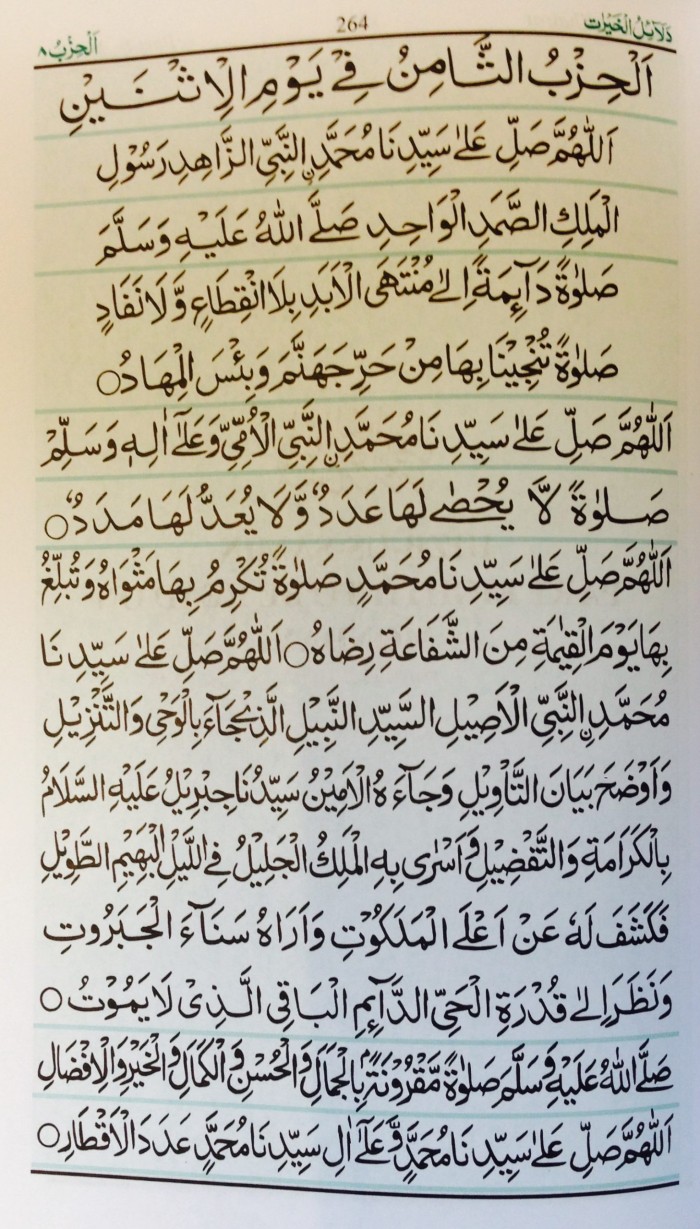 دَلَآئِلُ الْخَيْرَات 264 اَلْحِزْبُ ٨
اَلْحِزْبُ الثَّامِنُ فِيْ يَوْمِ الْاِثْنَيْنِ
اَللّٰهُمَّ صَلِّ عَلٰى سَيِّدِنَا مُحَمَّدِنِ النَّبِيِّ الزَّاهِدِ رَسُوْلِ
الْمَلِكِ الصَّمَدِ الْوَاحِدِ صَلَّى اللّٰهُ عَلَيْهِ وَسَلَّمَ
صَلٰوةً دَآئِمَةً اِلٰى مُنْتَهَى الْاَبَدِ بِلَا انْقِطَاعٍ وَّلَا نَفَادٍ
صَلٰوةً تُنْجِيْنَا بِهَا مِنْ حَرِّ جَهَنَّمَ وَبِئْسَ الْمِهَادُ ○
اَللّٰهُمَّ صَلِّ عَلٰى سَيِّدِنَا مُحَمَّدِنِ النَّبِيِّ الْاُمِّيِّ وَعَلٰٓى اٰلِهٖ وَسَلِّمْ
صَلٰوةً لَّا يُحْصٰى لَهَا عَدَدٌ وَّلَا يُعَدُّ لَهَا مَدَدٌ ○
اَللّٰهُمَّ صَلِّ عَلٰى سَيِّدِنَا مُحَمَّدٍ صَلٰوةً تُكْرِمُ بِهَا مَثْوَاهُ وَتُبَلِّغُ
بِهَا يَوْمَ الْقِيٰمَةِ مِنَ الشَّفَاعَةِ رِضَاهُ ○ اَللّٰهُمَّ صَلِّ عَلٰى سَيِّدِنَا
مُحَمَّدِنِ النَّبِيِّ الْاَصِيْلِ السَّيِّدِ النَّبِيْلِ الَّذِيْ جَآءَ بِالْوَحْيِ وَالتَّنْزِيْلِ
وَاَوْضَحَ بَيَانَ التَّاْوِيْلِ وَجَآءَهُ الْاَمِيْنُ سَيِّدُنَا جِبْرِيْلُ عَلَيْهِ السَّلَامُ
بِالْكَرَامَةِ وَالتَّفْضِيْلِ وَاَسْرٰى بِهِ الْمَلِكُ الْجَلِيْلُ فِى اللَّيْلِ الْبَهِيْمِ الطَّوِيْلِ
فَكَشَفَ لَهٗ عَنْ اَعْلَى الْمَلَكُوْتِ وَاَرَاهُ سَنَآءَ الْجَبَرُوتِ
وَنَظَرَ اِلٰى قُدْرَةِ الْحَيِّ الدَّآئِمِ الْبَاقِى الَّذِيْ لَا يَمُوْتُ ○
صَلَّى اللّٰهُ عَلَيْهِ وَسَلَّمَ صَلٰوةً مَّقْرُوْنَةً بِالْجَمَالِ وَالْحُسْنِ وَالْكَمَالِ وَالْخَيْرِ وَالْاِفْضَالِ
اَللّٰهُمَّ صَلِّ عَلٰى سَيِّدِنَا مُحَمَّدٍ وَّعَلٰٓى اٰلِ سَيِّدِنَا مُحَمَّدٍ عَدَدَ الْاَقْطَارِ ○